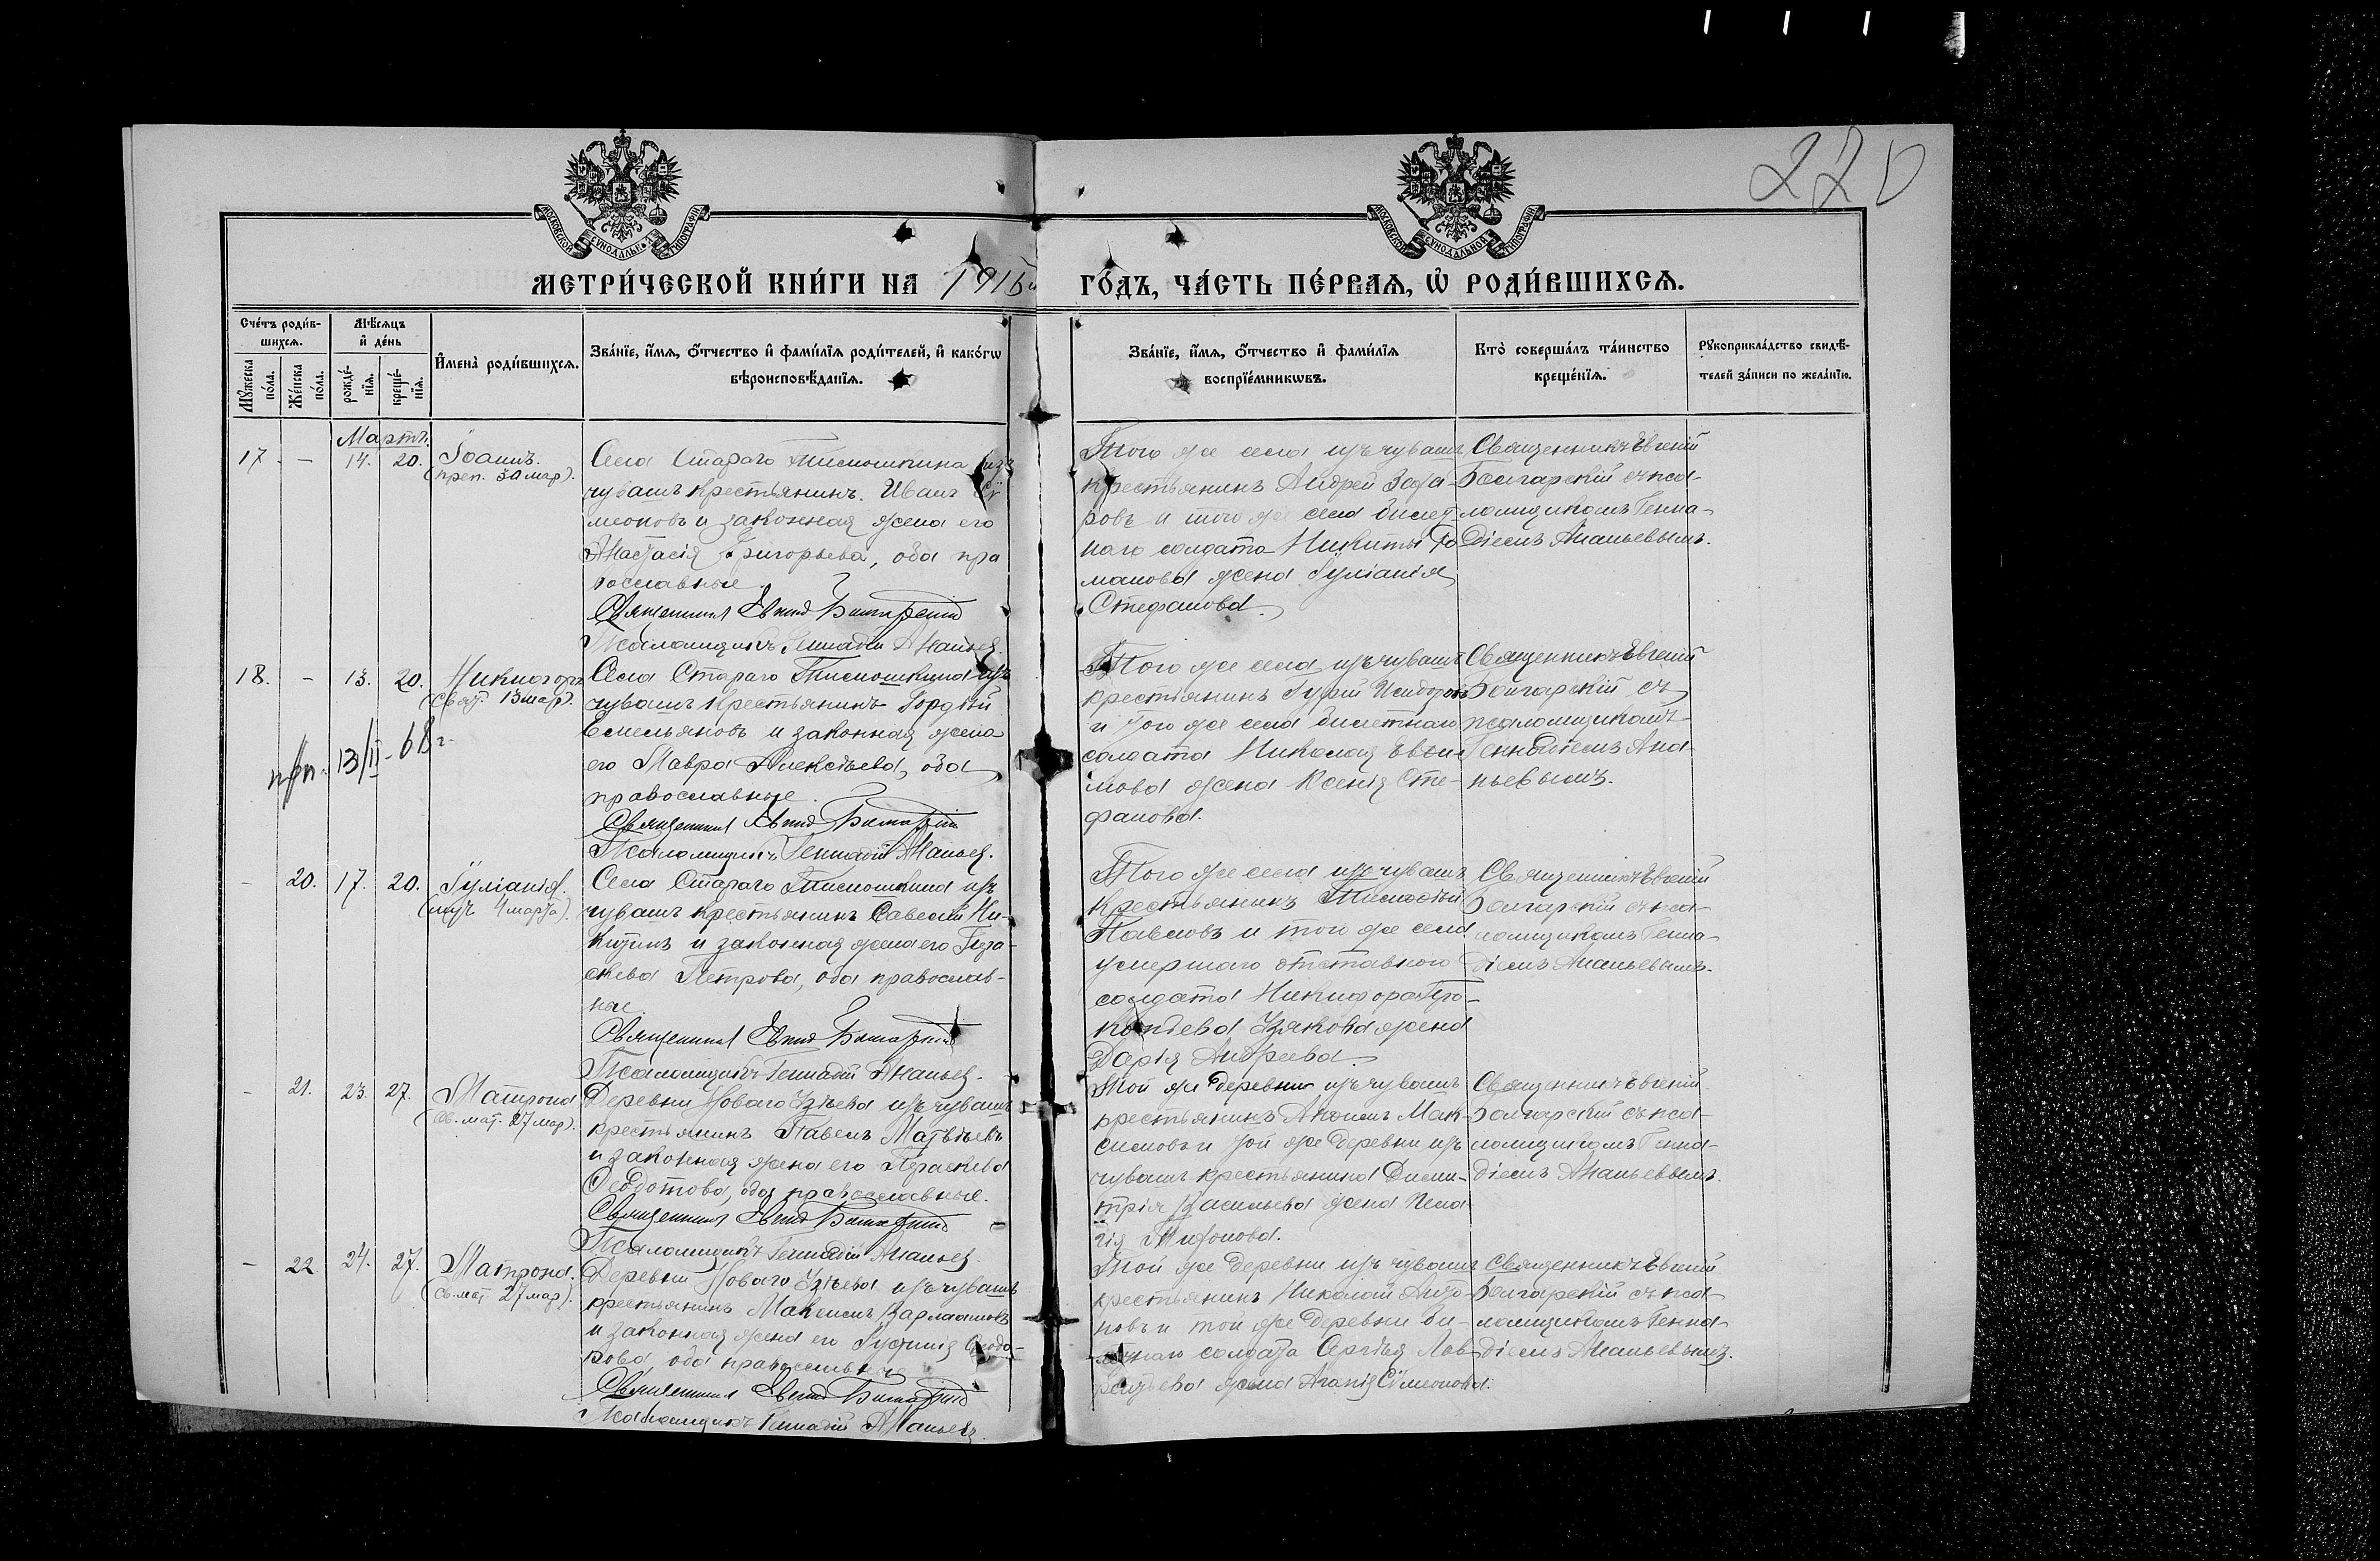 220
МОСКОВСКОЙ СѴНОДАЛЬНОЙ ТИПОГРАФІИ
МОСКОВСКОЙ СѴНОДАЛЬНОЙ ТИПОГРАФІИ
МЕТРИ́ЧЕСКОЙ КНИ́ГИ НА 1915й ГО́ДЪ, ЧА́СТЬ ПЕ́РВАЯ, Ѡ҆ РОДИ́ВШИХСЯ.
Сче́тъ роди́в-
шихся.
Мꙋ́жеска по́ла.
Же́нска по́ла.
Мѣ́сяцъ
и҆ де́нь
рожде́-
нїя.
креще́-
нїя.
И҆мена̀ роди́вшихся.
Зва́нїе, и҆́мя, ѻ҆́тчество и҆ фами́лїя роди́телей, и҆ како́гѡ
вѣроисповѣ́данїя.
Зва́нїе, и҆́мя, ѻ҆́тчество и҆ фами́лїя
воспрїе́мникѡвъ.
Кто̀ соверша́лъ та́инство
креще́нїя.
Рꙋкоприкла́дство свидѣ́-
телей за́писи по жела́нїю.
Мартъ.
17. - 14. 20. Іоаннъ.
(преп. 30 мар).
Села Стараго Тимошкина изъ
чувашъ крестьянинъ Иванъ Сѵ
меоновъ и законная жена его
Анастасія Григорьева, оба пра
вославные.
Священникъ Евгеній Болгарскій
Псаломщикъ Геннадій Ананьев.
Того же села изъ чувашъ
крестьянинъ Андрей Заха-
ровъ и того же села билет-
наго солдата Никиты Ро
манова жена Іуліанія
Стефанова.
Священникъ Евгеній
Болгарскій съ пса-
ломщикомъ Генна-
діемъ Ананьевымъ.
18. - 13. 20. Никифоръ
(Свят. 13 мар).
прп. 13/II - 68 г.
Села Стараго Тимошкина изъ
чувашъ крестьянинъ Гордѣй
Емельяновъ и законная жена
его Мавра Алексѣева, оба
православные.
Священникъ Евгеній Болгарскій
Псаломщикъ Геннадій Ананьев.
Того же села изъ чувашъ
крестьянинъ Гурій Исидоровъ
и того же села билетнаго
солдата Николая Евфи-
мова жена Ксенія Сте-
фанова.
Священникъ Евгеній
Болгарскій съ
псаломщикомъ
Геннадіемъ Ана-
ньевымъ.
- 20. 17. 20. Іуліанія.
(муч. 4 марта).
Села Стараго Тимошкина изъ
чувашъ крестьянинъ Савелій Ни-
китинъ и законная жена его Пара-
скева Петрова, оба православ-
ные.
Священникъ Евгеній Болгарскій
Псаломщикъ Геннадій Ананьев.
Того же села изъ чувашъ
крестьянинъ Тимофей
Павловъ и того же села
умершаго отставного
солдата Никифора Про-
копьева Узякова жена
Дарія Андреева
Священникъ Евгеній
Болгарскій съ пса-
ломщикомъ Генна-
діемъ Ананьевымъ.
- 21. 23. 27. Матрона
(Св. мат. 27 мар).
Деревни Новаго Узѣева изъ чувашъ
крестьянинъ Павелъ Матвѣевъ
и законная жена его Параскева
Ѳеодотова, оба православные.
Священникъ Евгеній Болгарскій
Псаломщикъ Геннадій Ананьев.
Той же деревни изъ чувашъ
крестьянинъ Мак-
симовъ и той же деревни изъ
чувашъ крестьянина Дими-
трія Васильева жена Пела-
гія Тифонова.
Священникъ Евгеній
Болгарскій съ пса-
ломщикомъ Генна-
діемъ Ананьевымъ.
- 22 24. 27. Матрона.
(Св. мат 27 мар).
Деревни Новаго Узѣева изъ чувашъ
крестьянинъ Максимъ Варлаамовъ
и законная жена его Іустинія Ѳеодо-
рова, оба православные
Священникъ Евгеній Болгарскій
Псаломщикъ Геннадій Ананьев.
Той же деревни изъ чувашъ
крестьянинъ Николай Анто-
новъ и той же деревни би-
летнаго солдата Сергѣя Лав-
рентьева жена Агапія Сѵмеонова.
Священникъ Евгеній
Болгарскій съ пса-
ломщикомъ Генна-
діемъ Ананьевымъ.